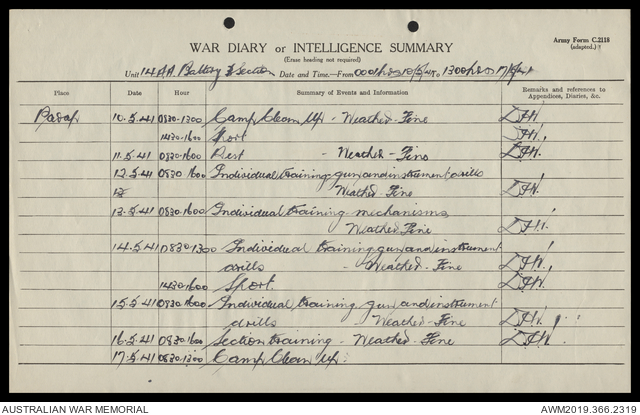 Army Form C.2118
(adapted.)
WAR DIARY or INTELLIGENCE SUMMARY
(Erase heading not required)
Unit 14 AA Battery Section Date and Time.—From 0001hrs 10/5/41 to 1300hrs 17/5/41
Place Date Hour Summary of Events and Information Remarks and references to Appendices, Diaries, &c.
Parap 10.5.41 0830-1300 Camp Clean Up - Weather - Fine
1430-1600 Sport
11.5.41 0830-1600 Rest - Weather - Fine
12.5.41 0830-1600 Individual training gun and instrument drills
Weather - Fine
13.5.41 0830-1600 Individual training mechanisms
Weather Fine
14.5.41 0830-1300 Individual training gun and instrument
drills - Weather - Fine
1430-1600 Sport.
15.5.41 0830-1600 Individual training gun and instrument
drills - Weather - Fine
16.5.41 0830-1600 Section training - Weather - Fine
17.5.41 0830-1300 Camp Clean Up.
AUSTRALIAN WAR MEMORIAL AWM2019.366.2319